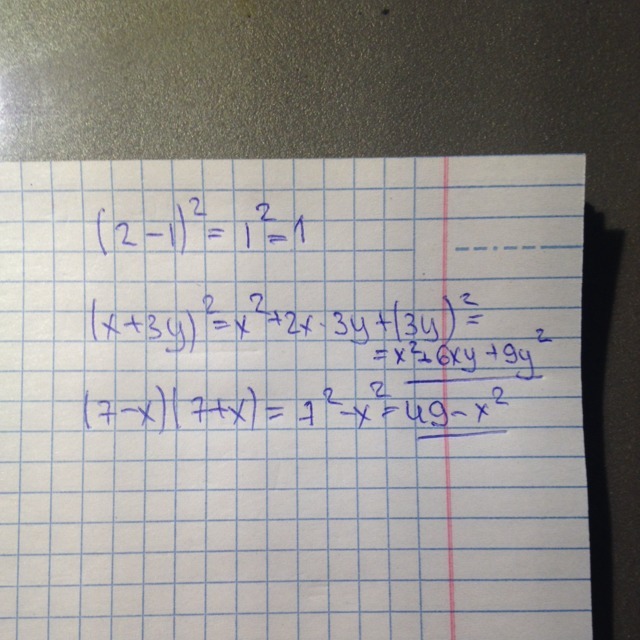 (2-1)² = 1² = 1
(x+3y)² = x² + 2x · 3y + (3y)² =
= x² + 6xy + 9y²
(7-x)(7+x) = 7² - x² = 49 - x²